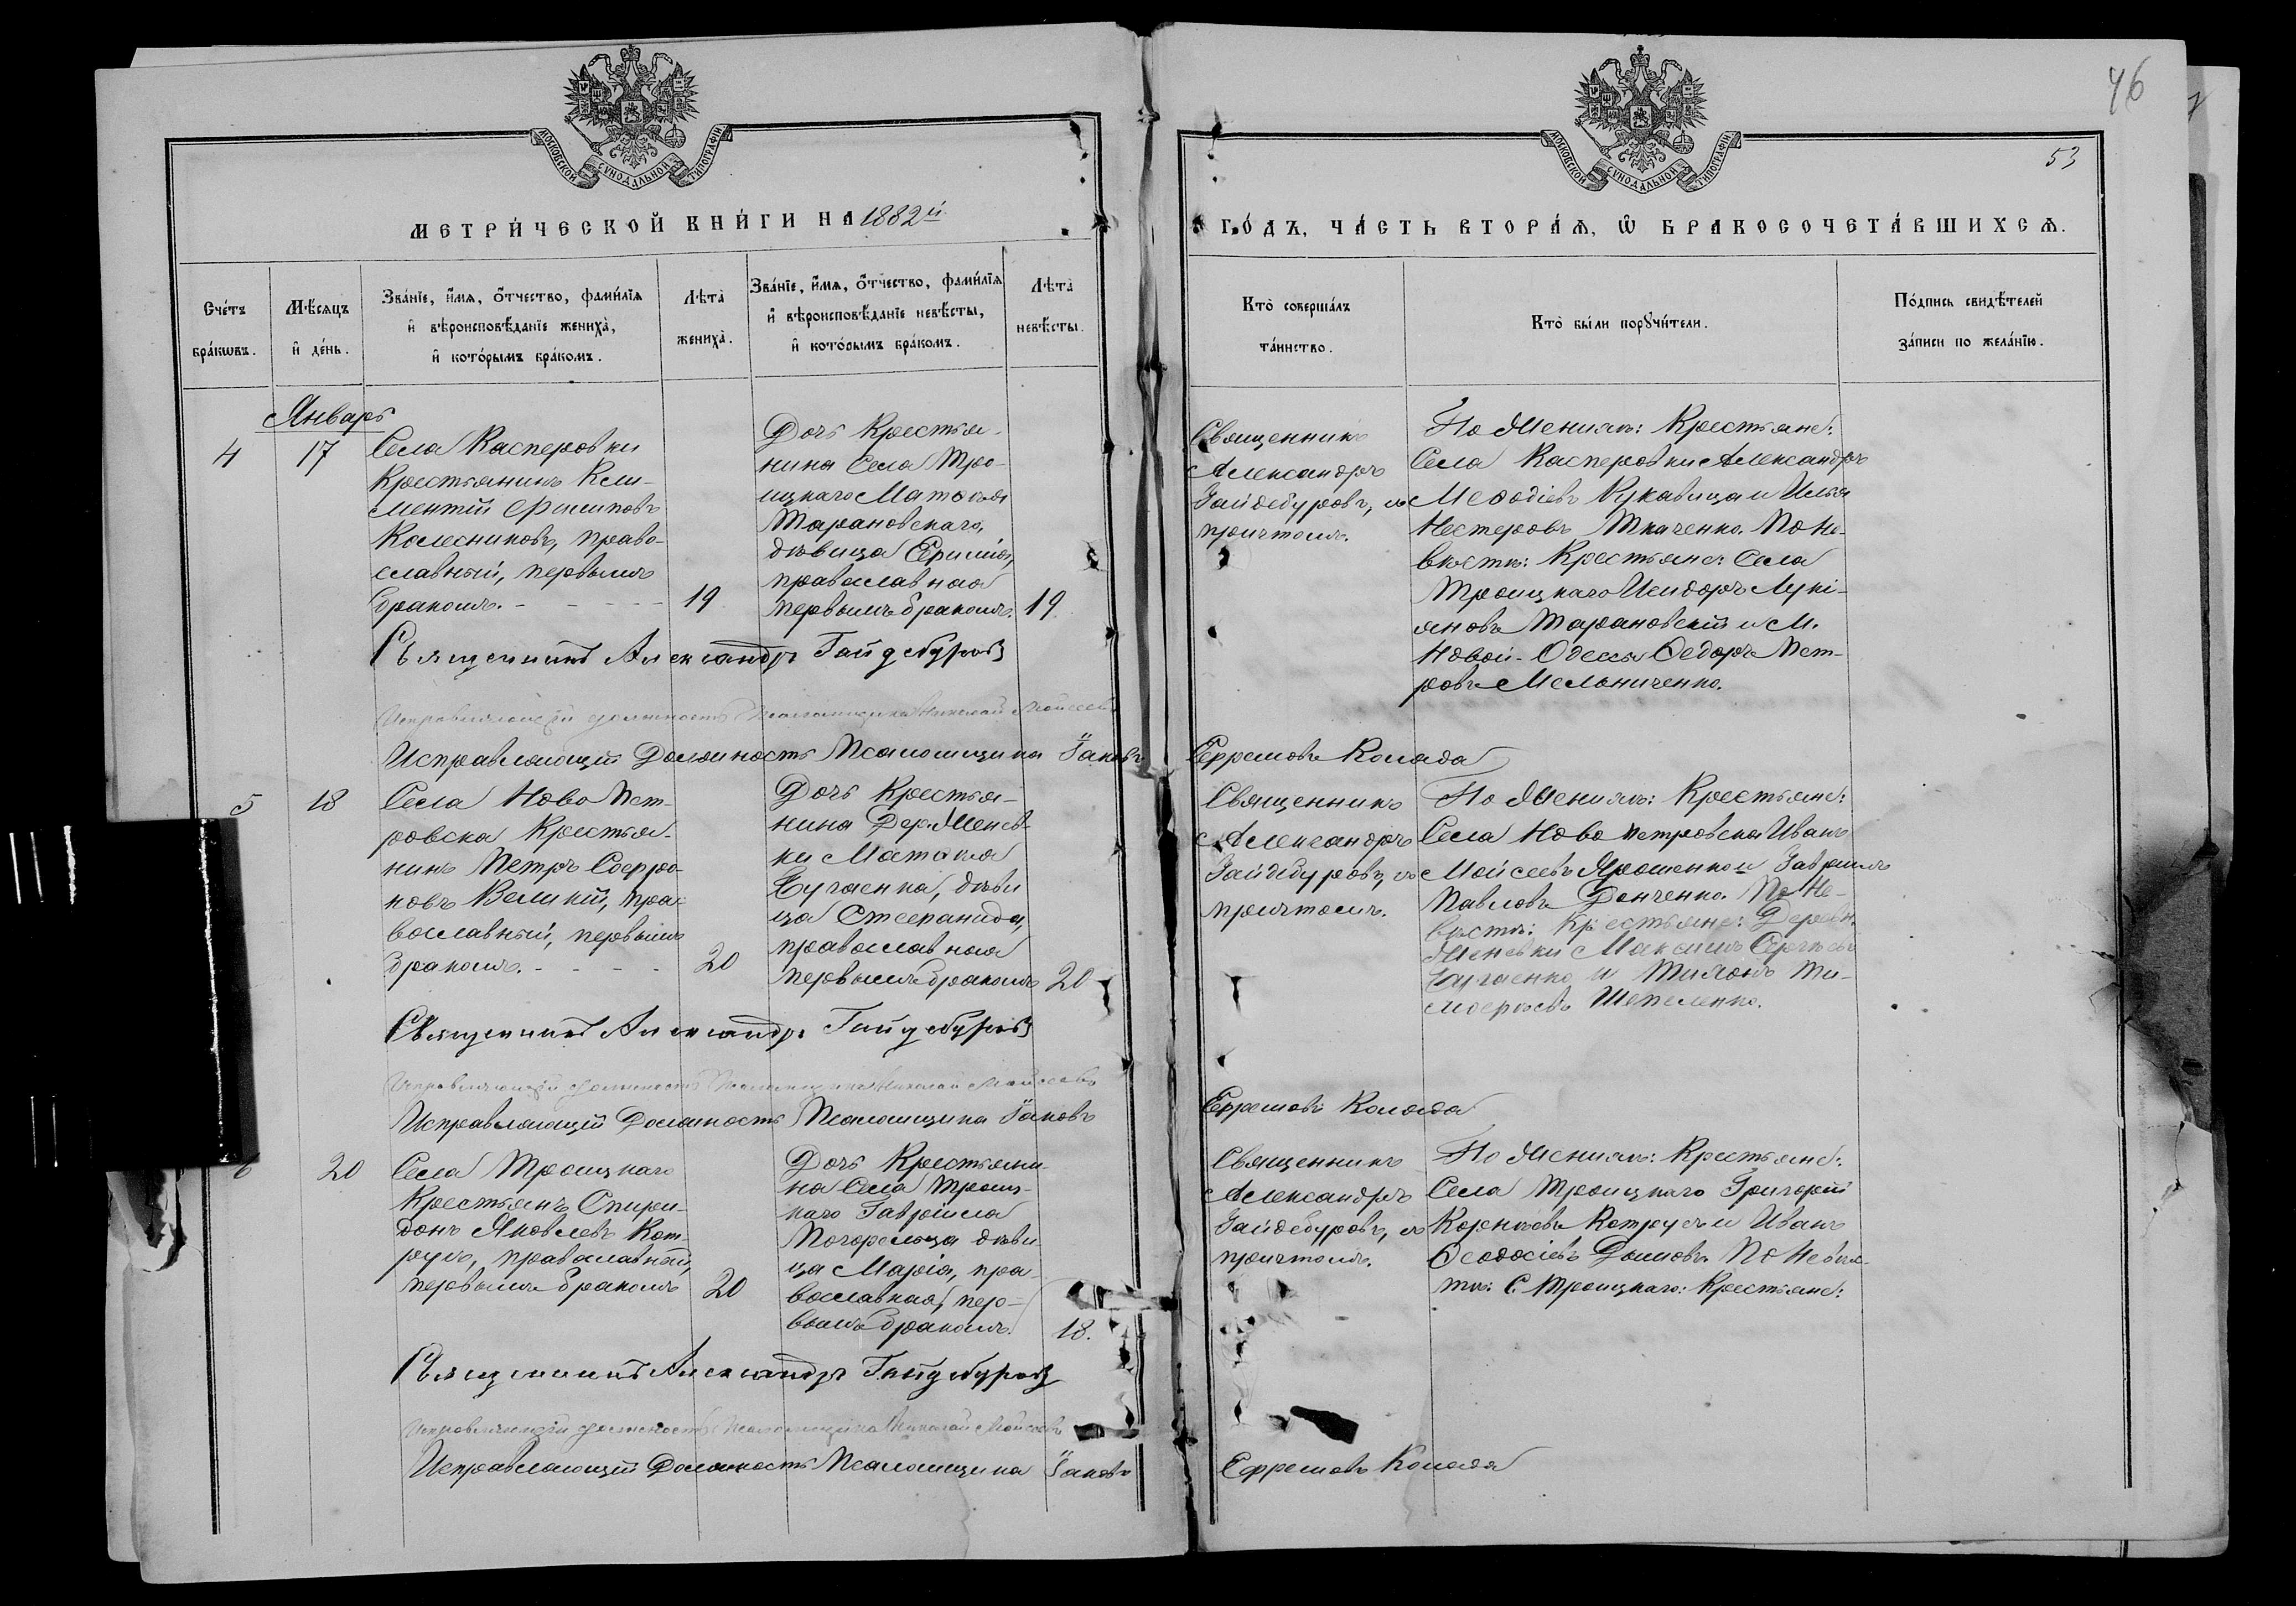 46
53
МОСКОВСКОЙ СѴНОДАЛЬНОЙ ТИПОГРАФІИ
МЕТРИ́ЧЕСКОЙ КНИ́ГИ НА 1882й
Сче́тъ бра́кѡвъ.
Мѣ́сяцъ и҆ де́нь.
Зва́нїе, и҆́мя, ѻ҆́тчество, фами́лїя
и҆ вѣроисповѣ́данїе жениха̀,
и҆ кото́рымъ бра́комъ.
Лѣта̀ жениха̀.
Зва́нїе, и҆́мя, ѻ҆́тчество, фами́лїя
и҆ вѣроисповѣ́данїе невѣ́сты,
и҆ кото́рымъ бра́комъ.
Лѣта̀ невѣ́сты.
МОСКОВСКОЙ СѴНОДАЛЬНОЙ ТИПОГРАФІИ
ГО́ДЪ, ЧА́СТЬ ВТОРА́Ѧ, Ѡ҆ БРАКОСОЧЕТА́ВШИХСѦ.
Кто̀ соверша́лъ
та́инство.
Кто̀ бы́ли порꙋчи́тели.
По́дпись свидѣ́телей
за́писи по жела́нїю.
Январь
4
17
Села Касперовки
Крестьянинъ Кли-
ментій Филиповъ
Колесниковъ, право-
славный, первымъ
бракомъ.
19
Дочь Крестья-
нина Села Тро-
ицкаго Матѳея
Тарановскаго,
дѣвица
православная
первымъ бракомъ.
19
Священникъ
Александръ
Гайдебуровъ, съ
причтомъ.
По Женихѣ: Крестьяне:
Села Касперовки Александръ
Меѳодіевъ Кукавица и Илья
Нестеровъ Ткаченко. По Не-
вѣстѣ: Крестьяне: Села
Троицкаго Исидоръ Лукі-
яновъ Тарановскій и М.
Новой-Одессы Ѳедоръ Пет-
ровъ Мельниченко.
Священникъ Александръ Гайдебуровъ
Исправляющій должность Псаломщика Николай Мойсеевъ
Исправляющій Должность Псаломщика Іаковъ Ефремовъ Коляда
5
18
Села Ново Пет-
ровска Крестья-
нинъ Петръ Софро-
новъ Великій, пра-
вославный, первымъ
бракомъ.
20
Дочь Крестья-
нина Дер. Яенев-
ки Матѳея
Бугаенка, дѣви
ца Стефанида,
православная
первымъ бракомъ
20
Священникъ
Александръ
Гайдебуровъ, съ
причтомъ.
По Женихѣ: Крестьяне:
Села Ново Петровска Иванъ
Мойсеевъ Ярошенко и Гавріилъ
Павловъ Донченко. По Не-
вѣстѣ: Крестьяне: Деревн.
Максимъ Сергѣевъ
Бугаенко и Тихонъ Ти-
моѳеевъ Шепеленко.
Священникъ Александръ Гайдебуровъ
Исправляющій должность Псаломщика Николай Мойсеевъ
Исправляющій Должность Псаломщика Іаковъ Ефремовъ Коляда
6
20
Села Троицкаго
Крестьянъ Спири-
донъ Яковлевъ Кот-
руцъ, православный,
первымъ бракомъ
20
Дочь Крестьяни-
на Села Троиц-
каго Гавріила
Погорельца дѣви
ца Марія, пра-
вославная, пер-
вымъ бракомъ.
18.
Священникъ
Александръ
Гайдебуровъ, съ
причтомъ.
По Женихѣ: Крестьяне:
Села Троицкаго Григорій
Корнѣевъ Котруцъ и Иванъ
Ѳеодосіевъ Дымовъ. По Невѣс-
тѣ: С. Троицкаго: Крестьяне:
Священникъ Александръ Гайдебуровъ
Исправляющій должность Псаломщика Николай Мойсеевъ
Исправляющій Должность Псаломщика Іаковъ Ефремовъ Коляда